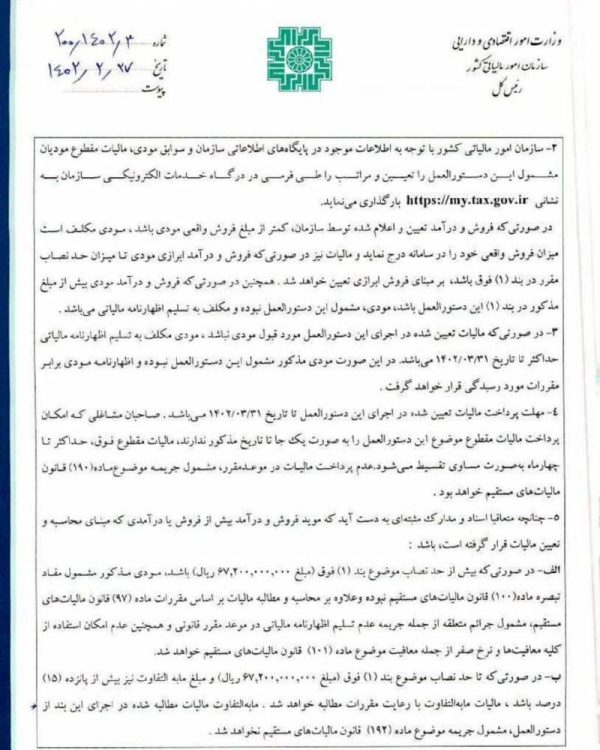 وزارت امور اقتصادی و دارایی
سازمان امور مالیاتی کشور
رئیس کل
شماره ۲۰۰٫۱۴۰۲٫۳
تاریخ ۱۴۰۲٫۲٫۲۷
پیوست
۲- سازمان امور مالیاتی کشور با توجه به اطلاعات موجود در پایگاه‌های اطلاعاتی سازمان و سوابق مودی، مالیات مقطوع مودیان
مشمول این دستورالعمل را تعیین و مراتب را طی فرمی در درگاه خدمات الکترونیکی سازمان به
نشانی https://my.tax.gov.ir بارگذاری می‌نماید.
در صورتی‌که فروش و درآمد تعیین و اعلام شده توسط سازمان، کمتر از مبلغ فروش واقعی مودی باشد ، مودی مکلف است
میزان فروش واقعی خود را در سامانه درج نماید و مالیات نیز در صورتی‌که فروش و درآمد ابرازی مودی تا میزان حد نصاب
مقرر در بند (۱) فوق باشد، بر مبنای فروش ابرازی تعیین خواهد شد . همچنین در صورتی‌که فروش و درآمد مودی بیش از مبلغ
مذکور در بند (۱) این دستورالعمل باشد، مودی، مشمول این دستورالعمل نبوده و مکلف به تسلیم اظهارنامه مالیاتی می‌باشد .
۳- در صورتی‌که مالیات تعیین شده در اجرای این دستورالعمل مورد قبول مودی نباشد ، مودی مکلف به تسلیم اظهارنامه مالیاتی
حداکثر تا تاریخ ۱۴۰۲/۰۳/۳۱ می‌باشد. در این صورت مودی مذکور مشمول این دستورالعمل نبوده و اظهارنامه مودی برابر
مقررات مورد رسیدگی قرار خواهد گرفت .
۴- مهلت پرداخت مالیات تعیین شده در اجرای این دستورالعمل تا تاریخ ۱۴۰۲/۰۳/۳۱ می‌باشد . صاحبان مشاغلی که امکان
پرداخت مالیات مقطوع موضوع این دستورالعمل را به صورت یک جا تا تاریخ مذکور ندارند، مالیات مقطوع فوق، حداکثر تا
چهارماه به‌صورت مساوی تقسیط می‌شود.عدم پرداخت مالیات در موعدمقرر، مشمول جریمه موضوع‌ماده(۱۹۰) قانون
مالیات‌های مستقیم خواهد بود .
۵- چنانچه متعاقبا اسناد و مدارک مثبته‌ای به دست آید که موید فروش و درآمد بیش از فروش یا درآمدی که مبنای محاسبه و
تعیین مالیات قرار گرفته است، باشد :
الف- در صورتی‌که بیش از حد نصاب موضوع بند (۱) فوق (مبلغ ۶۷,۲۰۰,۰۰۰,۰۰۰ ریال) باشد، مودی مذکور مشمول مفاد
تبصره ماده(۱۰۰) قانون مالیات‌های مستقیم نبوده وعلاوه بر محاسبه و مطالبه مالیات بر اساس مقررات ماده (۹۷) قانون مالیات‌های
مستقیم، مشمول جرائم متعلقه از جمله جریمه عدم تسلیم اظهارنامه مالیاتی در موعد مقرر قانونی و همچنین عدم امکان استفاده از
کلیه معافیت‌ها و نرخ صفر از جمله معافیت موضوع ماده (۱۰۱) قانون مالیات‌های مستقیم خواهد شد.
ب- در صورتی‌که تا حد نصاب موضوع بند (۱) فوق (مبلغ ۶۷,۲۰۰,۰۰۰,۰۰۰ ریال) و مبلغ مابه التفاوت نیز بیش از پانزده (۱۵)
درصد باشد ، مالیات مابه‌التفاوت با رعایت مقررات مطالبه خواهد شد . مابه‌التفاوت مالیات مطالبه شده در اجرای این بند از
دستورالعمل، مشمول جریمه موضوع ماده (۱۹۲) قانون مالیات‌های مستقیم نخواهد شد .